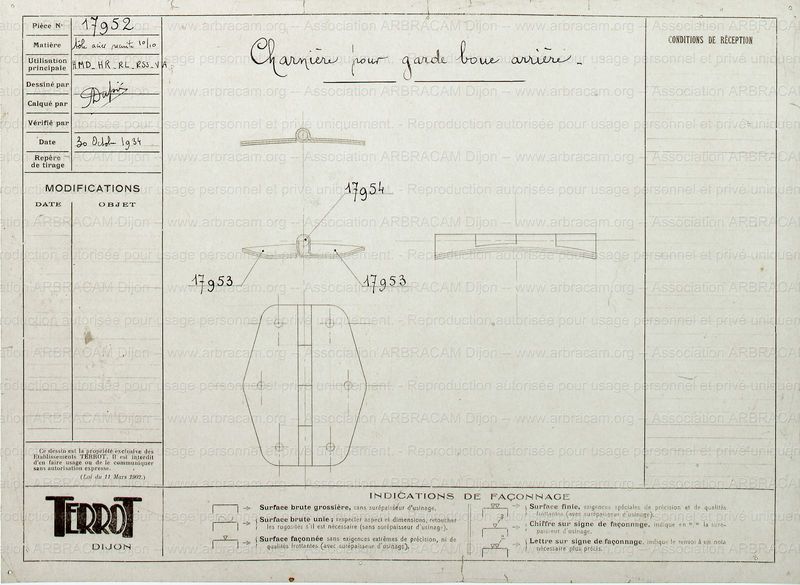 Pièce N° 17952
Matière tôle acier recuite 10/10
Utilisation principale HMD_HR_RL_RSS_VA
Dessiné par
Calqué par
Vérifié par
Date 30 Octobre 1934
Repère de tirage
MODIFICATIONS
DATE OBJET
Charnière pour garde boue arrière_
CONDITIONS DE RÉCEPTION
17954
17953
17953
Ce dessin est la propriété exclusive des
Etablissements TERROT. Il est interdit
d'en faire usage ou de le communiquer
sans autorisation expresse.
(Loi du 11 Mars 1902.)
TERROT
DIJON
INDICATIONS DE FAÇONNAGE
Surface brute grossière, sans surépaisseur d'usinage.
Surface brute unie ; respecter aspect et dimensions, retoucher
les rugosités s'il est nécessaire (sans surépaisseur d'usinage).
Surface façonnée sans exigences extrêmes de précision, ni de
qualités frottantes (avec surépaisseur d'usinage).
Surface finie, exigences spéciales de précision et de qualités
frottantes (avec surépaisseur d'usinage).
Chiffre sur signe de façonnage, indique en m/m la surépaisseur d'usinage.
Lettre sur signe de façonnage, indique le renvoi à un nota
nécessaire plus précis.
www.arbracam.org – Association ARBRACAM Dijon – www.arbracam.org – Association ARBRACAM Dijon
Reproduction autorisée pour usage personnel et privé uniquement.